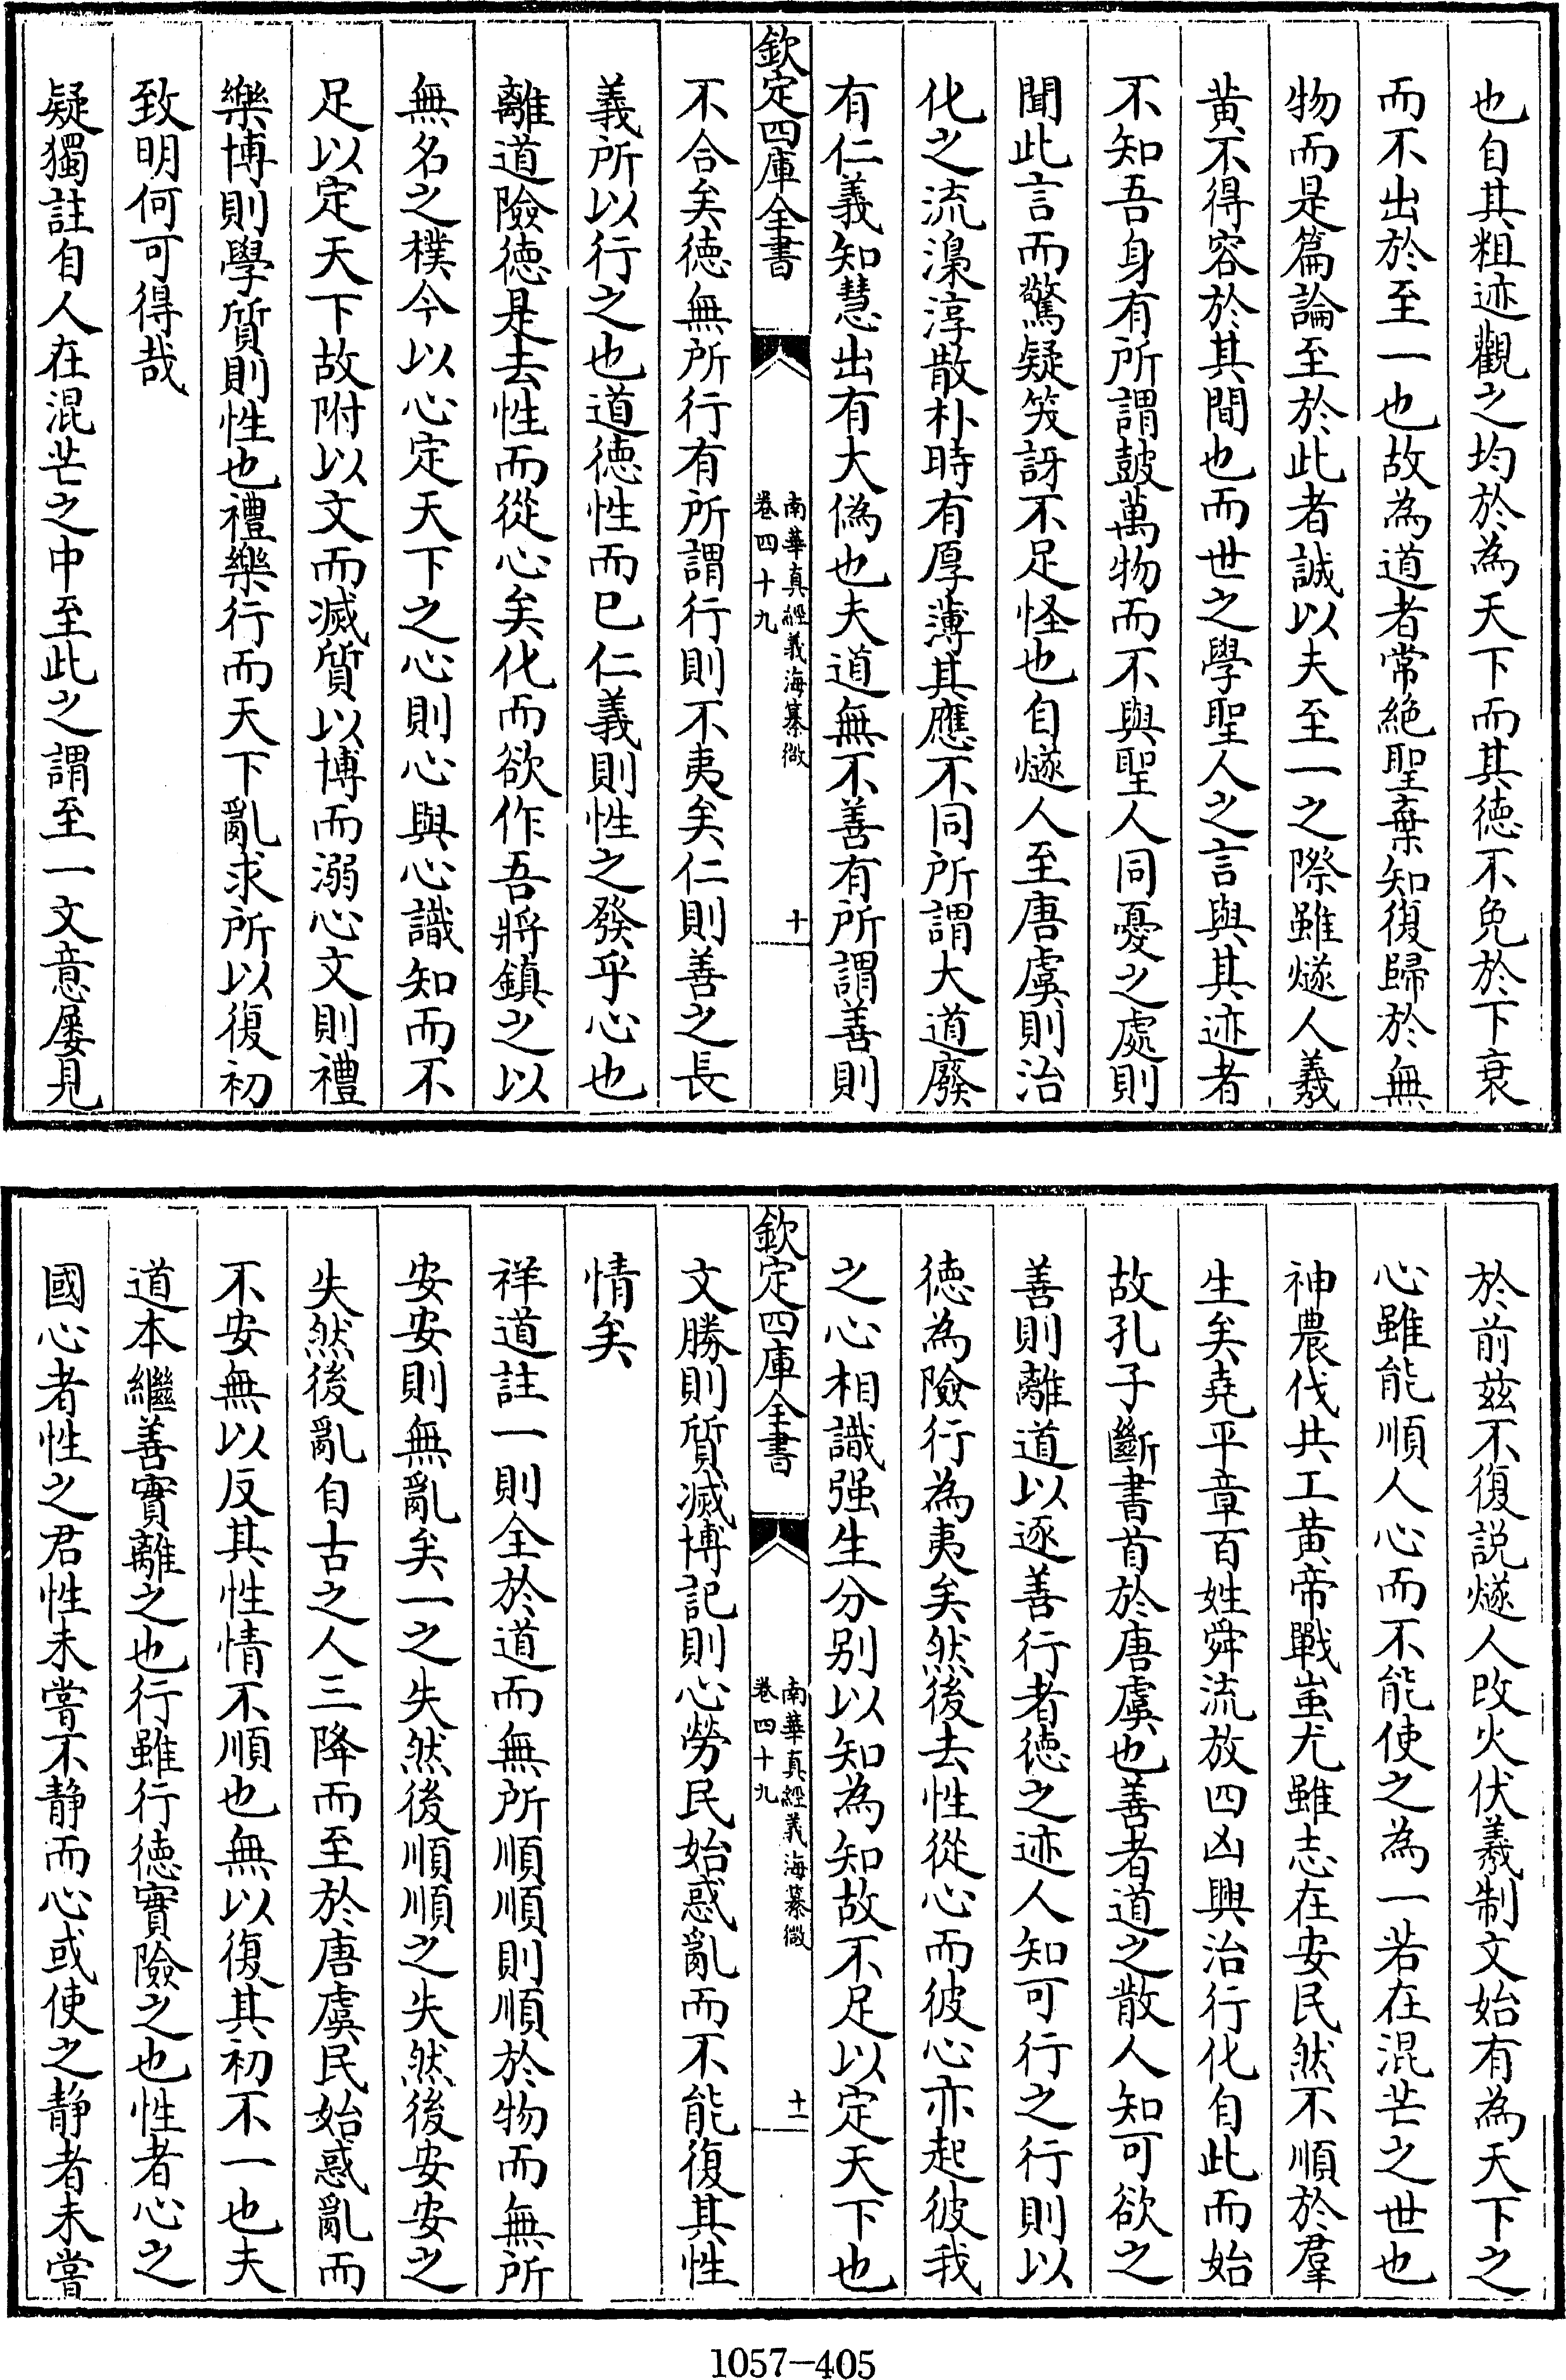 也自其粗迹觀之均於為天下而其徳不免於下衰
而不出於至一也故為道者常絶聖棄知復歸於無
物而是篇論至於此者誠以夫至一之際雖燧人羲
黄不得容於其間也而世之學聖人之言與其迹者
不知吾身有所謂鼓萬物而不與聖人同憂之處則
聞此言而驚疑笑訝不足怪也自燧人至唐虞則治
化之流澆淳散朴時有厚薄其應不同所謂大道廢
有仁義知慧出有大偽也夫道無不善有所謂善則
欽定四庫全書
南華真經義海纂微
卷四十九
十
不合矣徳無所行有所謂行則不夷矣仁則善之長
義所以行之也道徳性而已仁義則性之發乎心也
離道險徳是去性而從心矣化而欲作吾將鎮之以
無名之樸今以心定天下之心則心與心識知而不
足以定天下故附以文而滅質以博而溺心文則禮
樂博則學質則性也禮樂行而天下亂求所以復初
致明何可得哉
疑獨註自人在混芒之中至此之謂至一文意屡見
於前兹不復説燧人改火伏羲制文始有為天下之
心雖能順人心而不能使之為一若在混芒之世也
神農伐共工黄帝戰蚩尤雖志在安民然不順於羣
生矣堯平章百姓舜流放四凶興治行化自此而始
故孔子斷書首於唐虞也善者道之散人知可欲之
善則離道以逐善行者徳之迹人知可行之行則以
徳為險行為夷矣然後去性從心而彼心亦起彼我
之心相識强生分别以知為知故不足以定天下也
欽定四庫全書
南華真經義海纂微
卷四十九
十一
文勝則質滅博記則心勞民始惑亂而不能復其性
情矣
祥道註一則全於道而無所順順則順於物而無所
安安則無亂矣一之失然後順順之失然後安安之
失然後亂自古之人三降而至於唐虞民始惑亂而
不安無以反其性情不順也無以復其初不一也夫
道本繼善實離之也行雖行徳實險之也性者心之
國心者性之君性未嘗不静而心或使之静者未嘗
1057-405